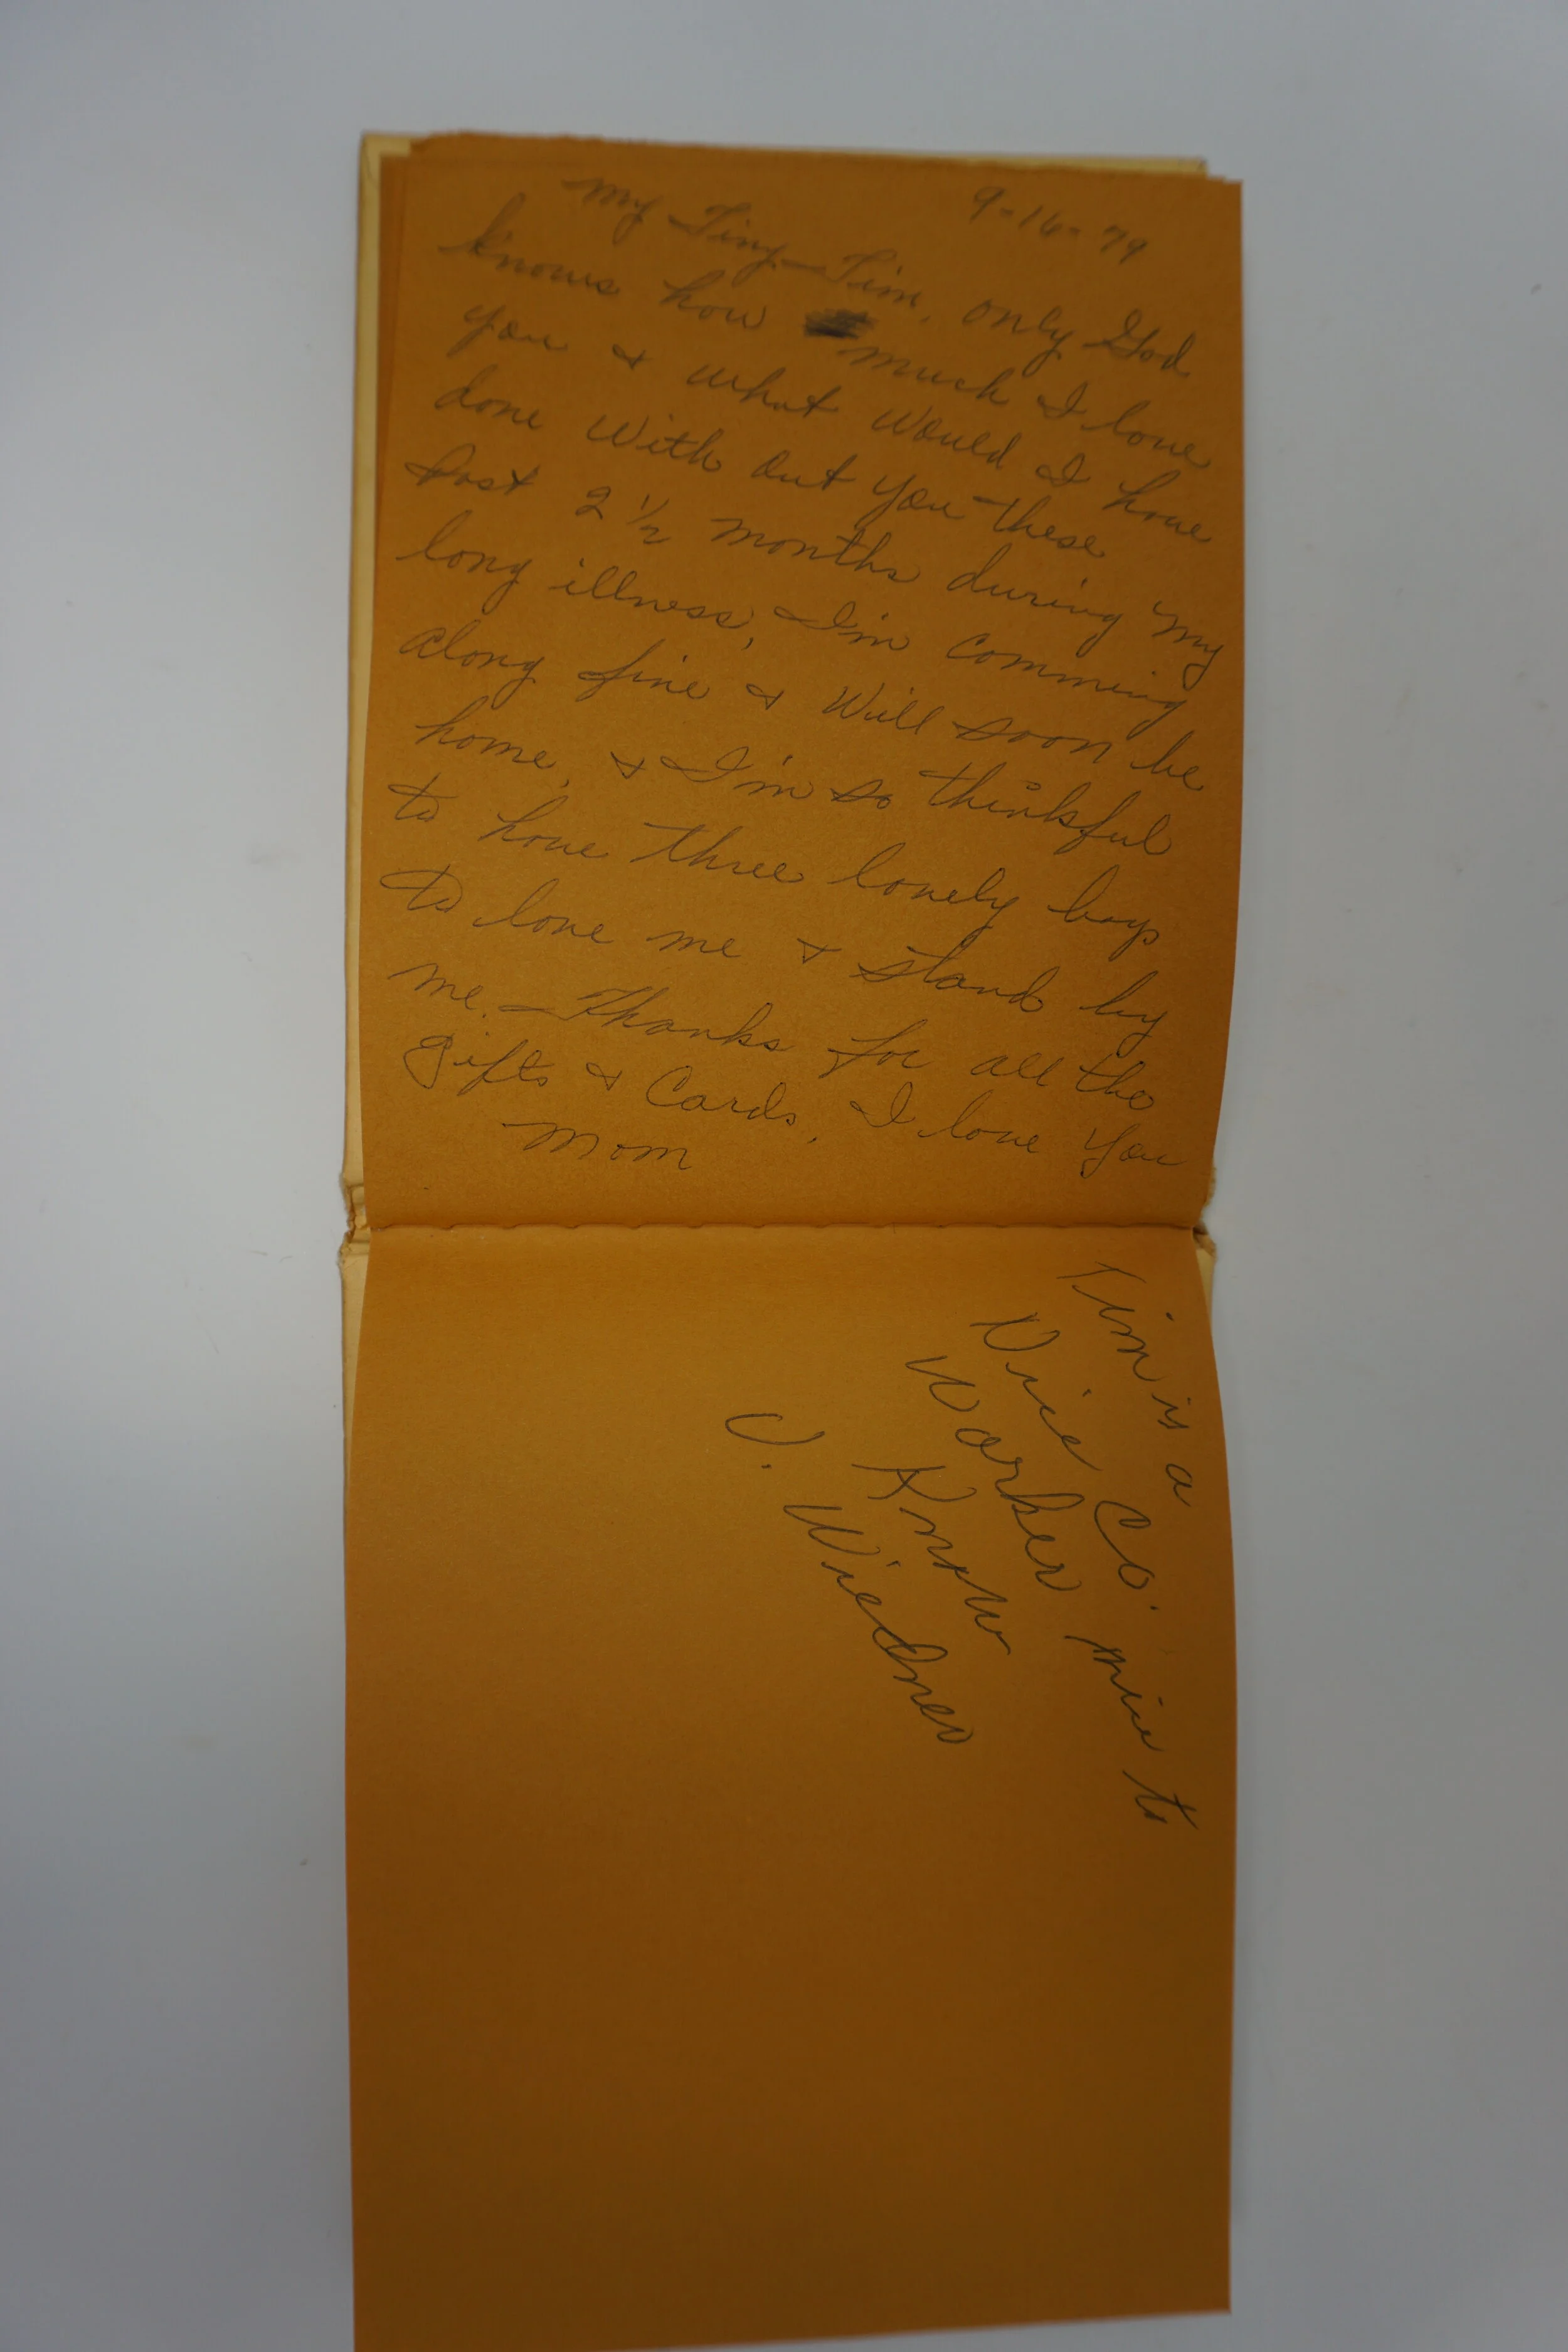 9-16-79
My Tiny-Tim, only God
knows how much I love
you & what would I have
done with out you these
Past 2 1/2 months during my
long illness, I'm comming
along fine & will soon be
home, & I'm so thinkful
to have three lovely boys
to love me & stand by
me. - Thanks for all the
gifts & Cards, I love you
Mom
Tim is a
Nice Co.
Worker nice to
Know
V. Wiedner